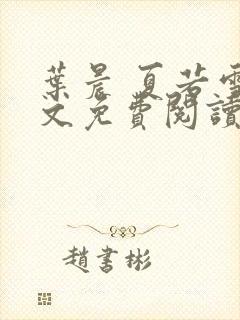 葉晨 夏若雪
文免費閱讀
趙書彬